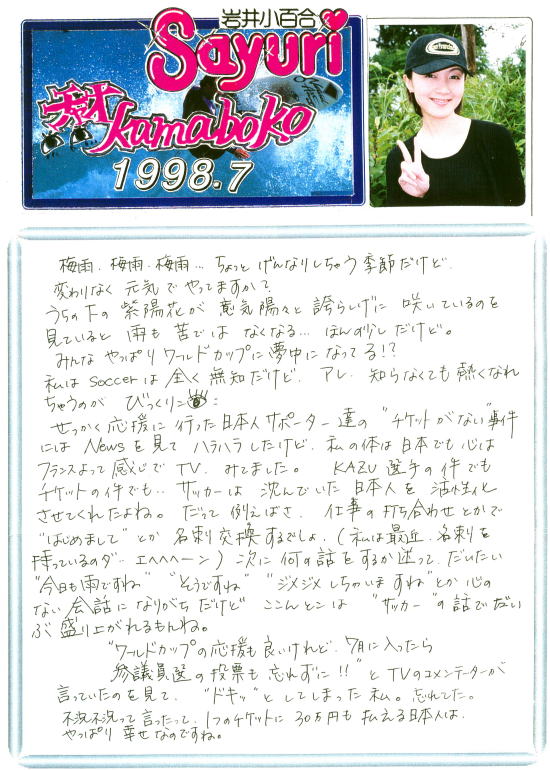 岩井小百合
Sayuri
チャオ
kamaboko
1998.7
梅雨、梅雨、梅雨… ちょっと げんなりしちゃう 季節だけど、
変わりなく 元気 で やってますか?
うちの下の 紫陽花が 意気陽々と 誇らしげに 咲いているのを
見ていると 雨も 苦では なくなる… ほんの少しだけど。
みんな やっぱり ワールドカップに夢中に なってる!?
私は soccer は 全く 無知だけど、アレ、知らなくても 熱くなれ
ちゃうのが びっくりニ
せっかく応援に 行った日本人 サポーター 達の "チケットがない"事件
には Newsを見て ハラハラしたけど、私の体は日本でも 心は
フランスよって 感じで TV、みてました。 KAZU 選手の件でも
チケットの件でも‥ サッカーは 沈んでいた 日本人を 活性化
させてくれたよね。だって 例えばさ、仕事の打ち合わせとかで
"はじめまして" とか 名刺交換するでしょ、(私は最近、名刺を
持っているのダ‥エへへへーン) 次に 何の話をするか迷って、だいたい
"今日も雨ですね" "そうですね" "ジメジメ しちゃいますね"とか 心の
ない 会話に なりがち だけど" ここんとこは "サッカー"の話でだい
ぶ 盛り上がれるもんね。
"ワールドカップの応援も良いけれど、7月に入ったら
参議員選の投票も 忘れずに!!" と TVのコメンテーターが
言っていたのを見て、"ドキッ" と してしまった 私。忘れてた。
不況不況って 言ったって、1つのチケットに 30万円も 払える日本人は、
やっぱり 幸せなのですね。